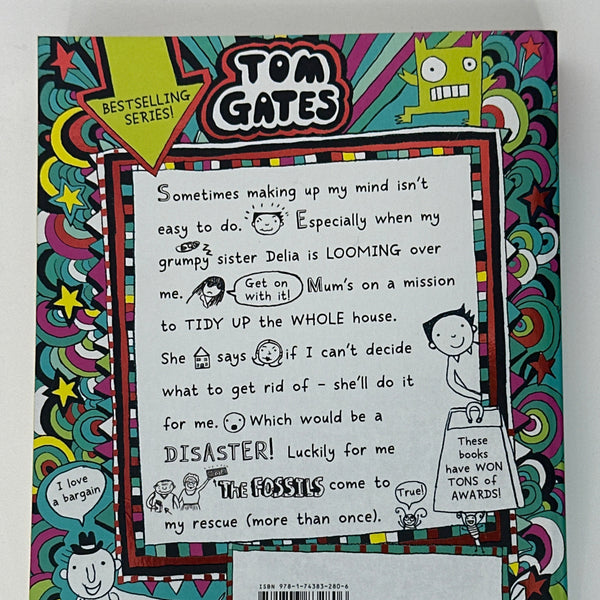 TOM
GATES
BESTSELLING
SERIES!
Sometimes making up my mind isn't
easy to do. Especially when my
grumpy sister Delia is LOOMING over
me. Get on
with it! Mum's on a mission
to TIDY UP the WHOLE house.
She says if I can't decide
what to get rid of – she'll do it
for me. Which would be a
DISASTER! Luckily for me
'THE FOSSILS come to
my rescue (more than once).
True!
These
books
have WON
TONS of
AWARDS!
I love
a bargain
ISBN 978-1-74383-280-6